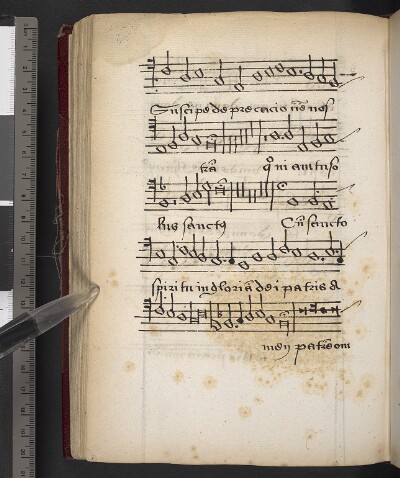 Suscipe deprecacionē nos
trā qm̄ tu so
lus sanctus Cū sancto
spiritu in gloria dei patris a
men patrē om